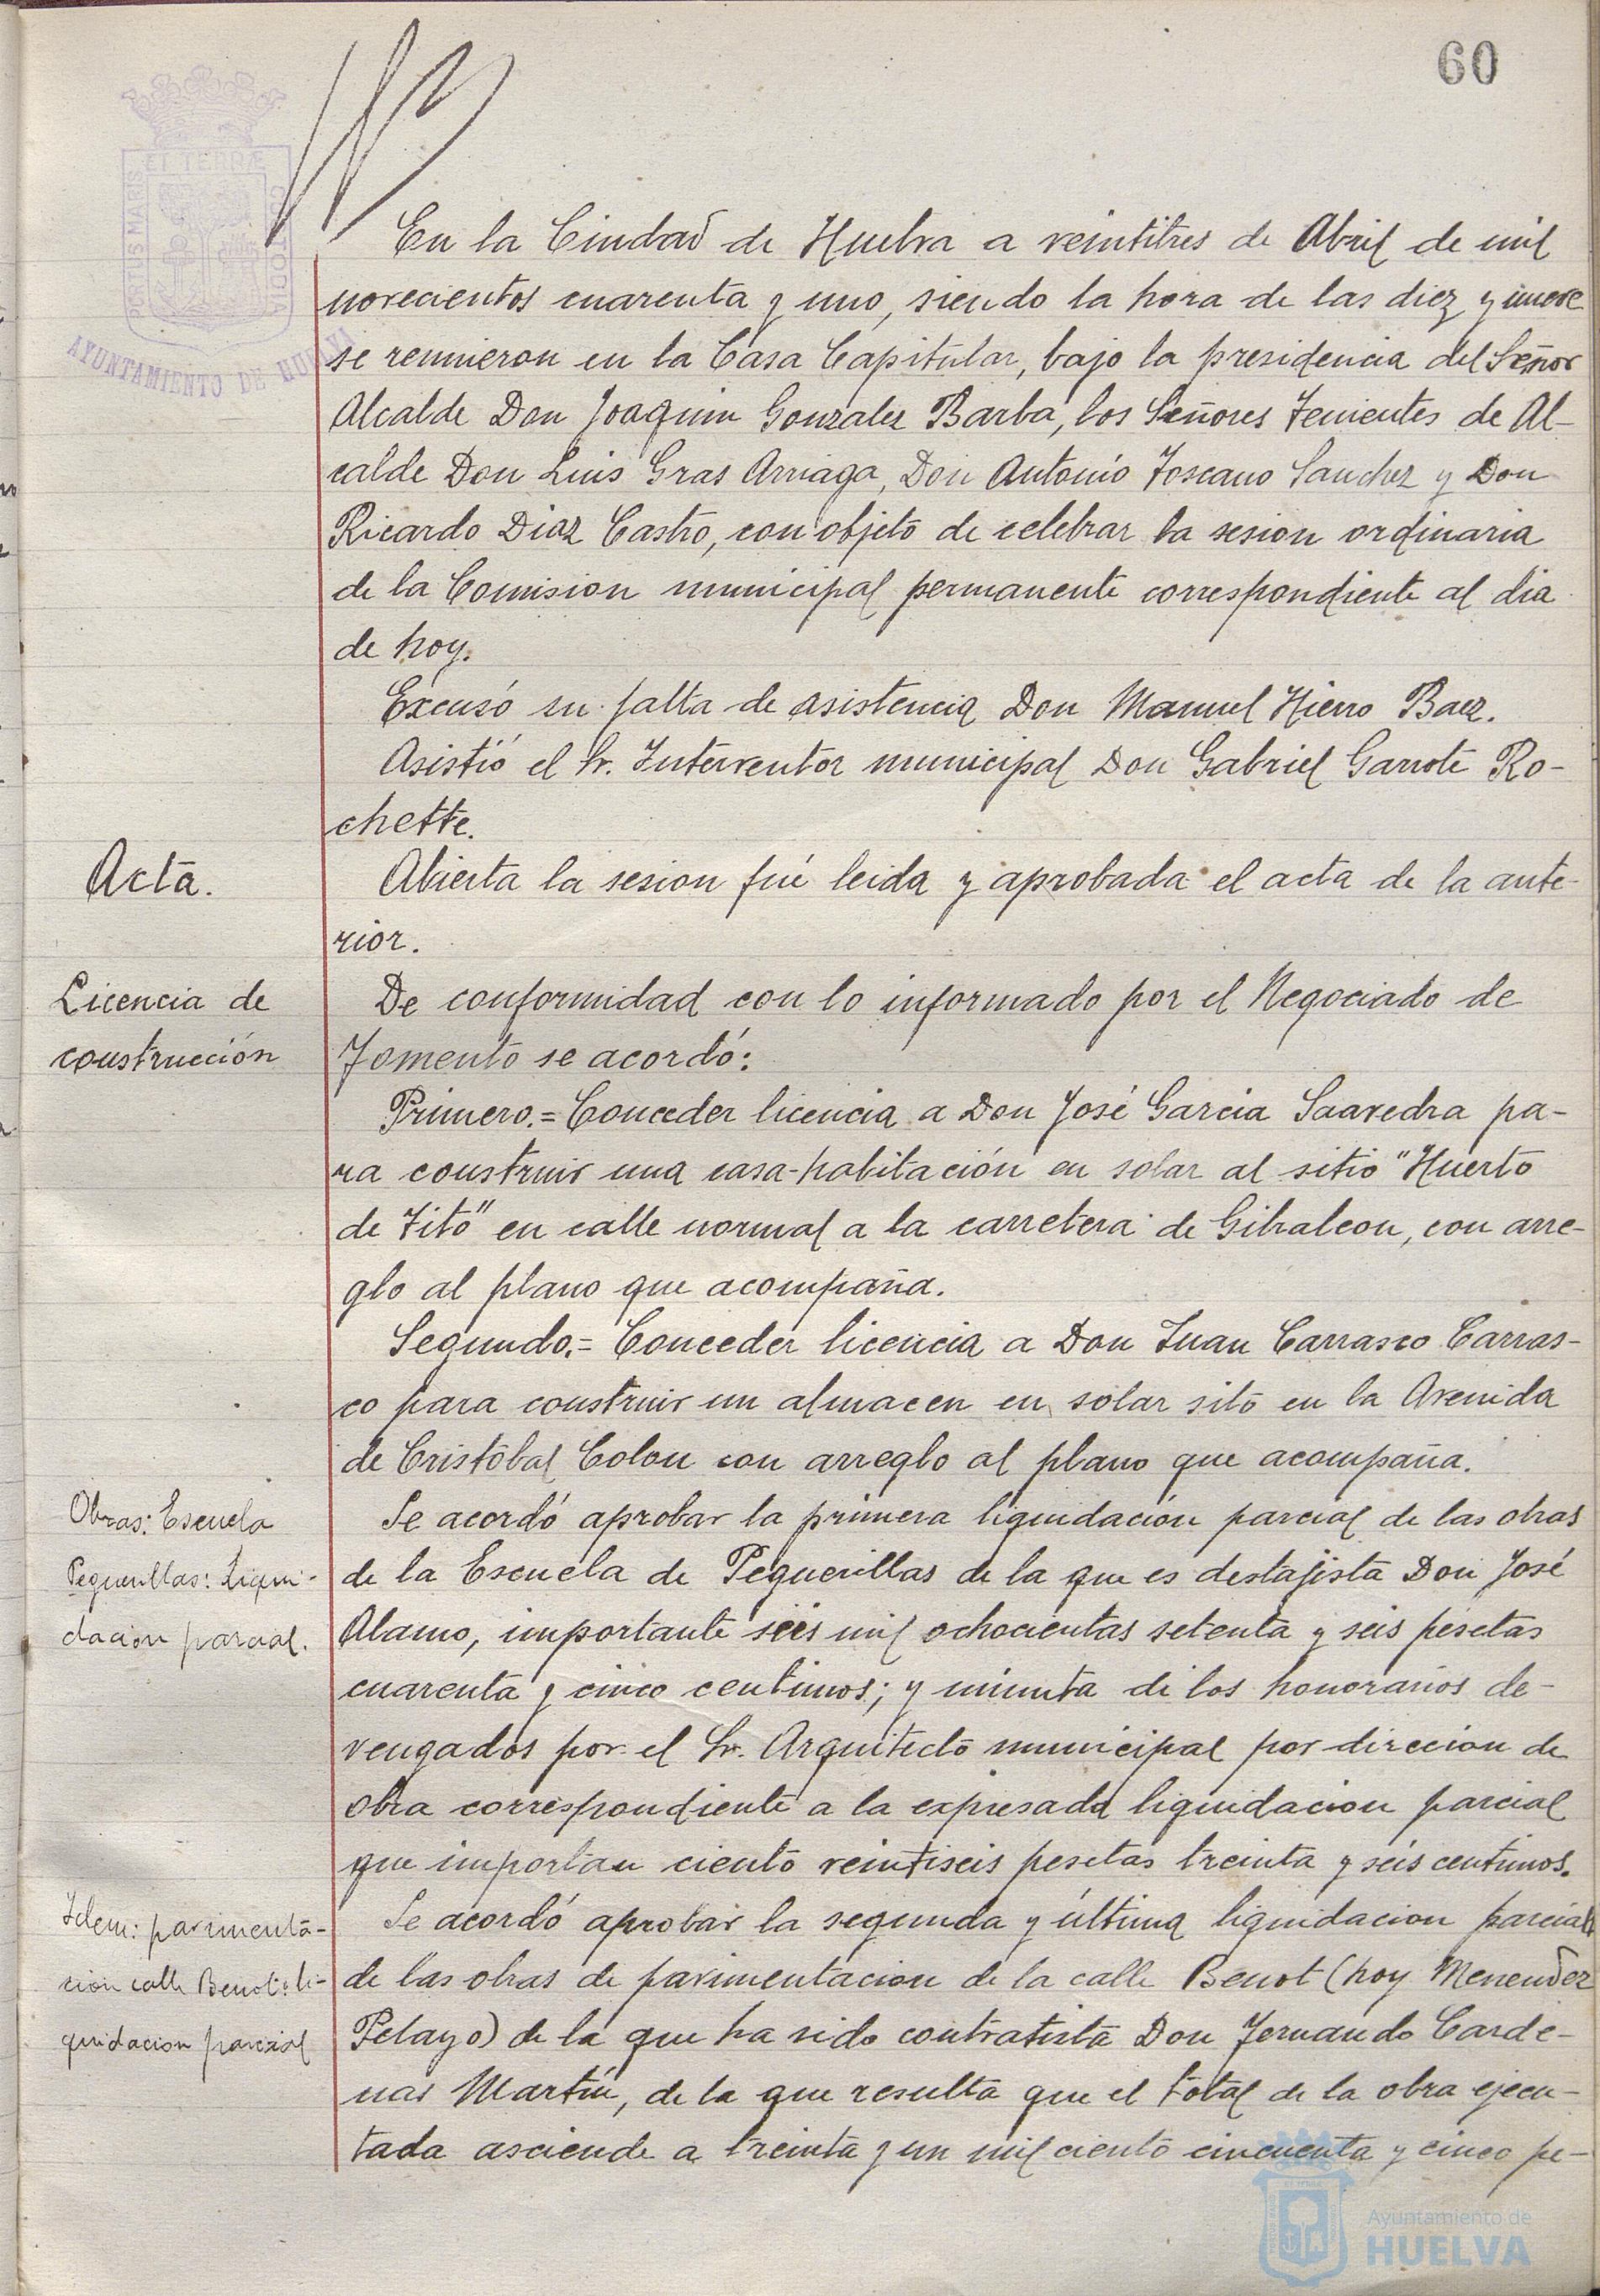 60
PORTUS MARIS
ET TERRÆ
CUSTODIA
AYUNTAMIENTO DE HUELVA
En la Ciudad de Huelva a veintitres de Abril de mil
novecientos cuarenta y uno, siendo la hora de las diez y nueve
se reunieron en la Casa Capitular, bajo la presidencia del Señor
Alcalde Don Joaquin Gonzalez Barba, los Señores Tenientes de Al-
calde Don Luis Gras Arriaga, Don Antonio Toscano Sanchez y Don
Ricardo Diaz Castro, con objeto de celebrar la sesion ordinaria
de la Comision municipal permanente correspondiente al dia
de hoy.
Excusó su falta de asistencia Don Manuel Hierro Baez.
Asistió el Sr. Interventor municipal Don Gabriel Garrote Ro-
chette.
Acta.
Abierta la sesion fué leida y aprobada el acta de la ante-
rior.
Licencia de
construcción
De conformidad con lo informado por el Negociado de
Fomento se acordó:
Primero.= Conceder licencia a Don José Garcia Saavedra pa-
ra construir una casa-habitación en solar al sitio "Huerto
de Tito" en calle normal a la carretera de Gibraleon, con arre-
glo al plano que acompaña.
Segundo.= Conceder licencia a Don Juan Carrasco Carras-
co para construir un almacen en solar sito en la Avenida
de Cristóbal Colon con arreglo al plano que acompaña.
Obras: Escuela
Pequenillas: Liqui-
dacion parcial.
Se acordó aprobar la primera liquidación parcial de las obras
de la Escuela de Pequenillas de la que es destajista Don José
Alamo, importante seis mil ochocientas setenta y seis pesetas
cuarenta y cinco centimos; y minuta de los honorarios de-
vengados por el Sr. Arquitecto municipal por direccion de
obra correspondiente a la expresada liquidacion parcial
que importan ciento veintiseis pesetas treinta y seis centimos.
Idem: pavimenta-
cion calle Benot: li-
quidacion parcial
Se acordó aprobar la segunda y última liquidacion parcial
de las obras de pavimentacion de la calle Benot (hoy Menendez
Pelayo) de la que ha sido contratista Don Fernando Carde-
nas Martin, de la que resulta que el total de la obra ejecu-
tada asciende a treinta y un mil ciento cincuenta y cinco pe-
Ayuntamiento de
HUELVA